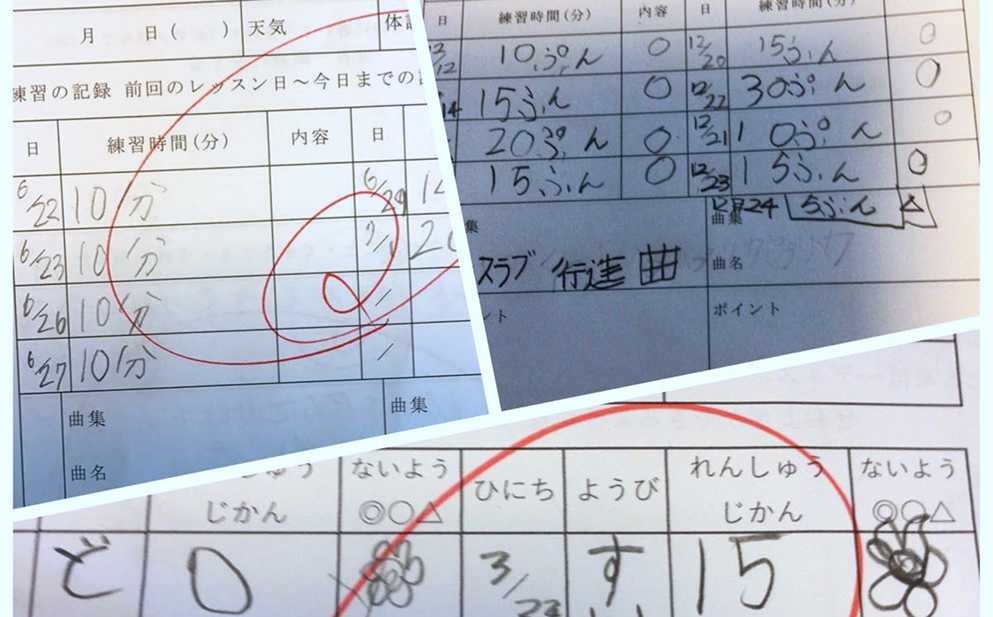 月 日( ) 天気 体
練習の記録 前回のレッスン日〜今日までの
日 練習時間(分) 内容 日
6/22 10分 6/29
6/23 10分
6/26 10分
6/27 10分
曲集 曲集
曲名
日 練習時間(分) 内容 日 練習時間(分)
12/12 10ぷん ○ 12/20 15ふん ○
14 15ふん ○ 12/22 30ぷん ○
20ぷん ○ 12/21 10ぷん ○
15ふん ○ 12/23 15ふん ○
12月24 5ふん △
集 曲集
スラブ行進曲 曲名
ント ポイント
ないよう ひにち ようび れんしゅう ないよう
じかん ◎○△ じかん ◎○△
ど 0 3/23 す 15